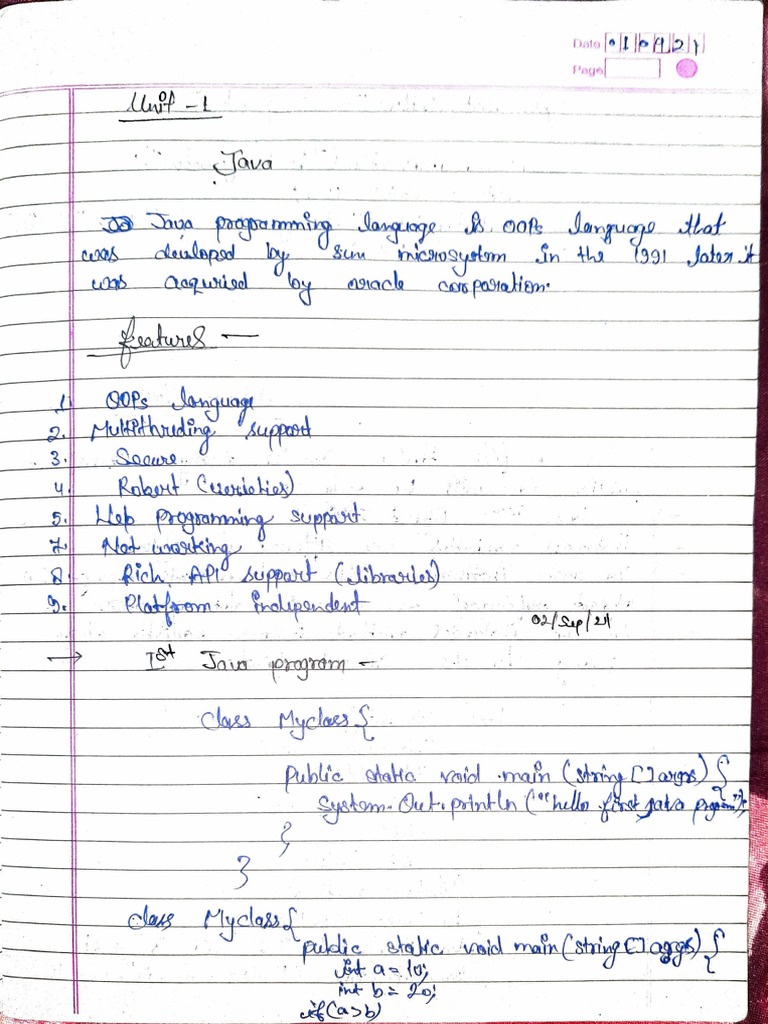 Date 01 09 21
Page
Unit - 1
Java
Java programming language is OOPs language that
was developed by sun microsystem in the 1991 later it
was acquried by oracle corparation.
features —
1. OOPs language
2. Multithreding support
3. Secure
4. Robert
5. Web programming support
7. Net working
8. Rich API support (libraries)
9. Platfrom independent
02/Sep/21
→ Ist Java program -
class Myclass {
public static void main (string [] args) {
System.Out.println ("hello first java program");
}
}
class Myclass {
public static void main (string [] args) {
int a = 10;
int b = 20;
if (a>b)